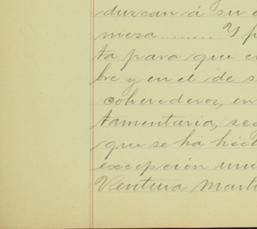 duzcan á su
meza ........ Y p
ta para que en
bre y en el de s
coherederos, en
tamentaria, se
que se há hech
excepción una
Ventura Marti